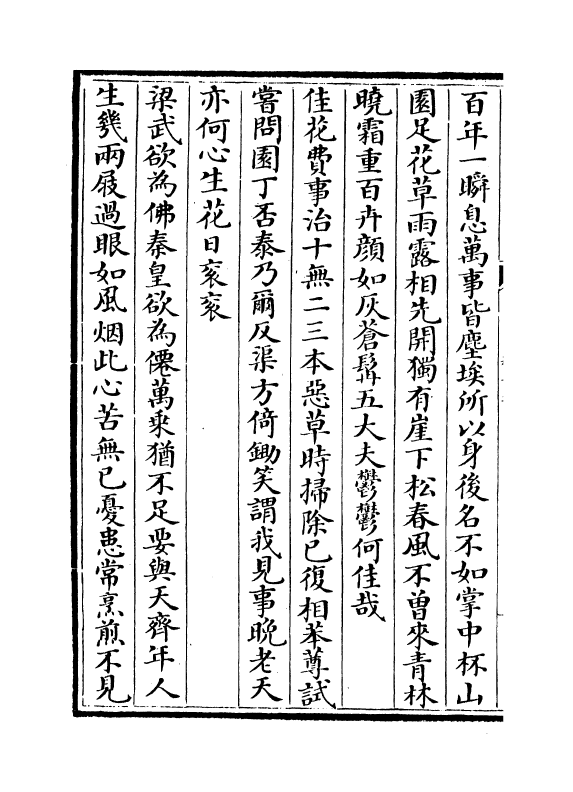 百年一瞬息萬事皆塵埃所以身後名不如掌中杯山
園足花草雨露相先開獨有崖下松春風不曽來青林
曉霜重百卉顔如灰蒼髯五大夫鬱鬱何佳哉
佳花費事治十無二三本惡草時掃除已復相苯䔿試
嘗問園丁否泰乃爾反渠方倚鋤笑謂我見事晩老天
亦何心生花日衮衮
梁武欲為佛秦皇欲為僊萬乘猶不足要與天齊年人
生幾兩屐過眼如風烟此心苦無已憂患常烹煎不見